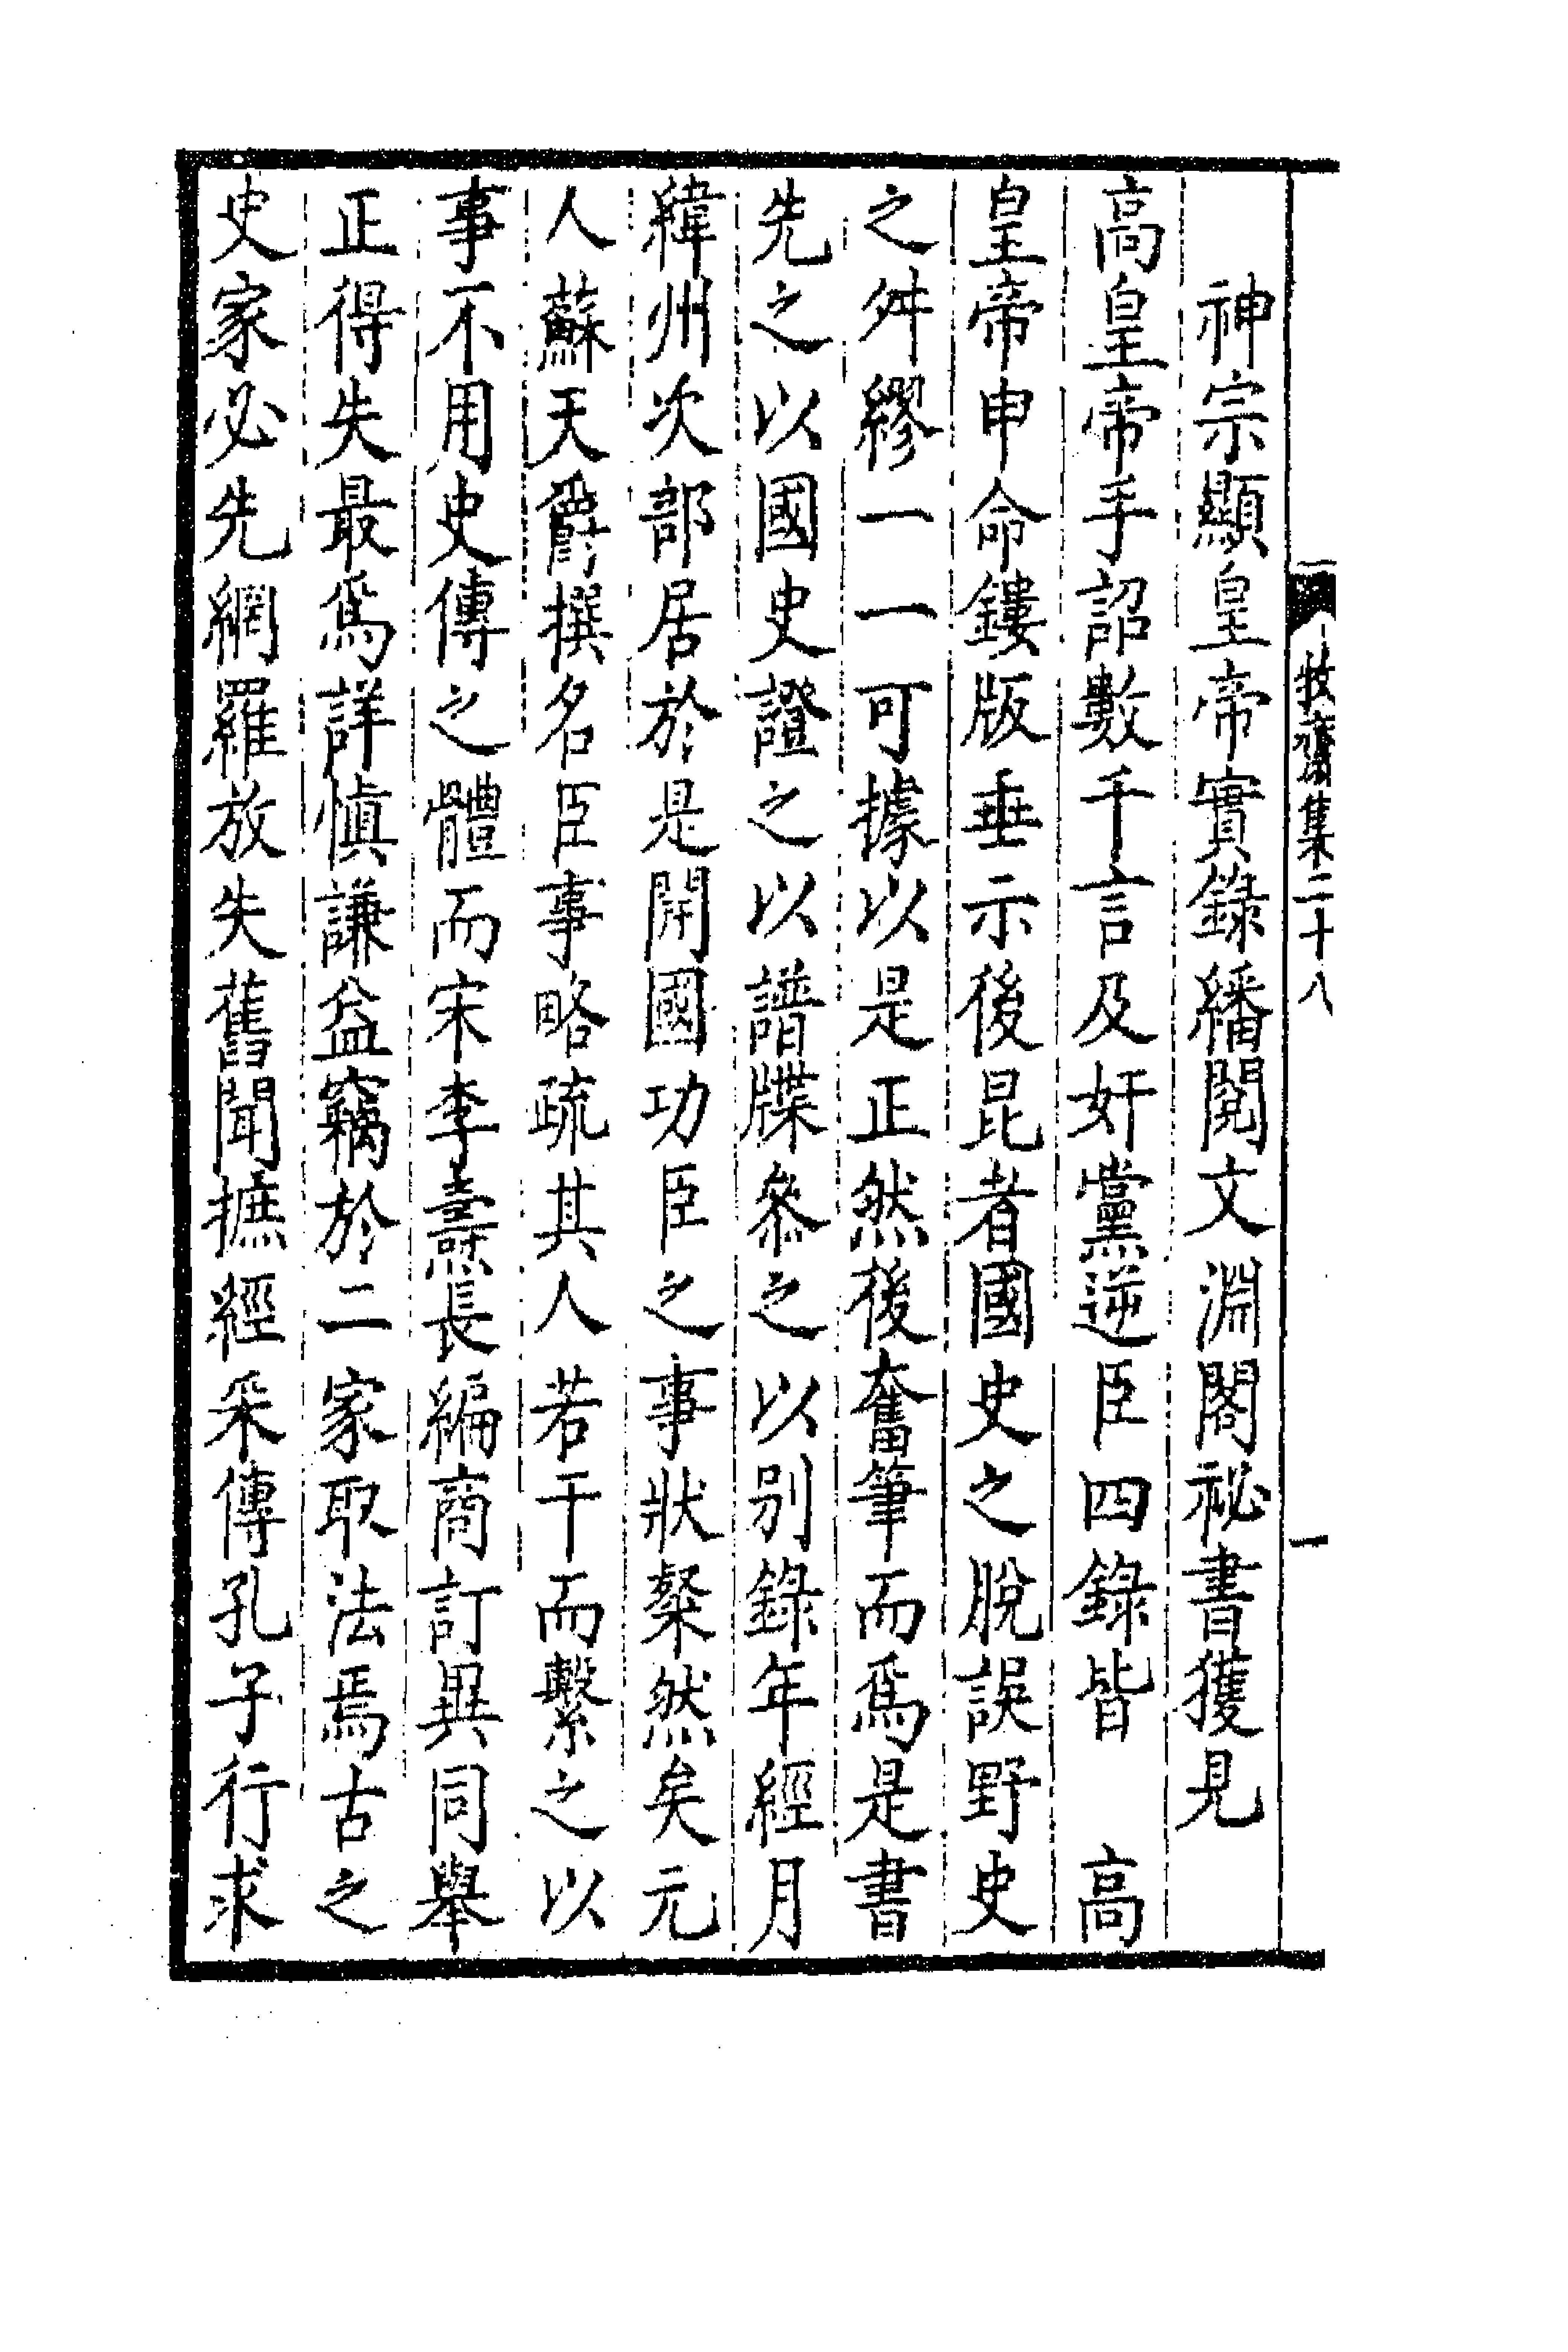 牧齋集二十八
一
神宗顯皇帝實錄繙閱文淵閣祕書獲見
高皇帝手詔數千言及奸黨逆臣四錄皆　高
皇帝申命鏤版垂示後昆者國史之脫誤野史
之舛繆一一可據以是正然後奮筆而爲是書
先之以國史證之以譜牒參之以別錄年經月
緯州次部居於是開國功臣之事狀粲然矣元
人蘇天爵撰名臣事略疏其人若干而繫之以
事不用史傳之體而宋李燾長編商訂異同舉
正得失最爲詳慎謙益竊於二家取法焉古之
史家必先網羅放失舊聞摭經采傳孔子行求